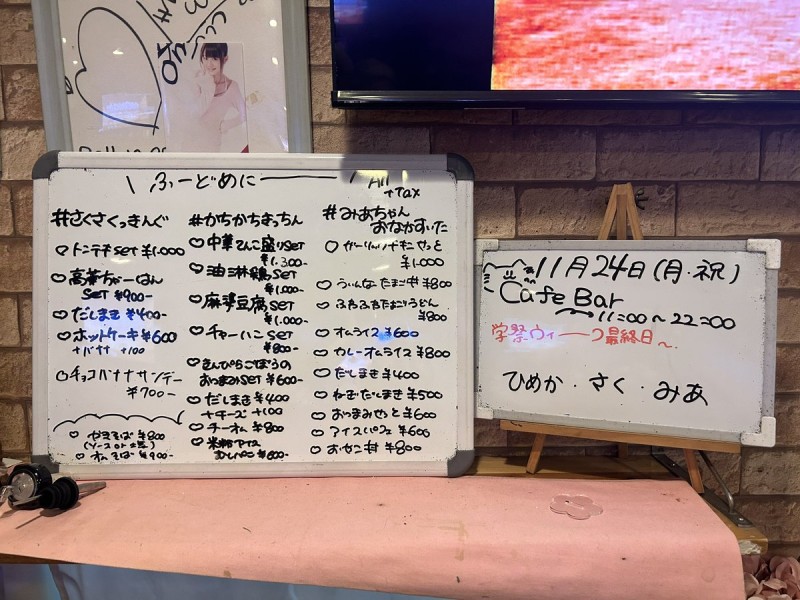 \ ふーどめにー / All +tax
#さくさくっきんぐ
♡トンテキSET ¥1.000
♡高菜ちゃーはん
SET ¥900-
♡だしまき ¥400-
♡ホットケーキ ¥600
+バナナ +100
♡チョコバナナサンデー
¥700-
♡やきそば ¥800
♡オムそば ¥900-
#かちかちきっちん
♡中華てんこ盛りSET
¥1.300-
♡油淋鶏SET
¥1.000-
♡麻婆豆腐SET
¥1.000-
♡チャーハンSET
¥800-
♡きんぴらごぼうの
おつまみSET ¥600-
♡だしまき ¥400
+チーズ +100
♡チーオム ¥800
♡米粉アイス
¥600-
#みあちゃん
おなかすいた
¥1.000
♡ういんなーたまご丼 ¥800
♡ふわふわたまごうどん
¥800
♡オムライス ¥600
♡カレーオムライス ¥800
♡だしまき ¥400
♡ねぎだしまき ¥500
♡おつまみせっと ¥600
♡アイスパフェ ¥600
¥800
11月24日(月・祝)
Cafe Bar
11:00〜22:00
学祭ウィーク最終日〜
ひめか・さく・みあ